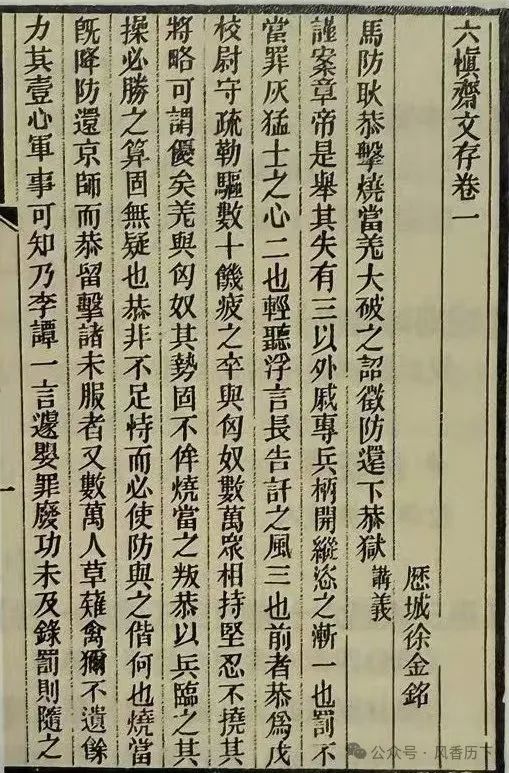 六慎齋文存卷一
歴城徐金銘
馬防耿恭擊燒當羌大破之詔徵防還下恭獄 講義
謹案章帝是舉其失有三以外戚專兵柄開縱恣之漸一也罰不
當罪灰猛士之心二也輕聽浮言長告訐之風三也前者恭爲戊
校尉守疏勒驅數十饑疲之卒與匈奴數萬衆相持堅忍不撓其
將略可謂優矣羌與匈奴其勢固不侔燒當之叛恭以兵臨之其
操必勝之算固無疑也恭非不足恃而必使防與之偕何也燒當
旣降防還京師而恭留擊諸未服者又數萬人草薙禽獮不遺餘
力其壹心軍事可知乃李譚一言遽嬰罪廢功未及錄罰則隨之
一
公众号·风香历下